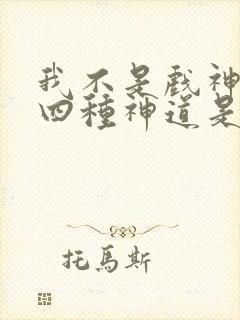 我不是戲神
四種神道是
托馬斯